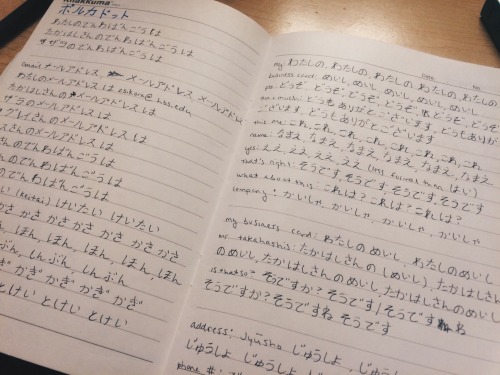 ポルカドット
わたしのでんわばんごうは
たかはしさんのでんわばんごうは
サラのでんわばんごうは
email メールアドレス, メールアドレス, メールアドレス
わたしのメールアドレスは
たかはしさんのメールアドレスは
サラのメールアドレスは
さんのメールアドレスは
さんのメールアドレスは
のでんわばんごうは
のでんわばんごうは
(keitai) けいたい けいたい
かさ かさ かさ かさ かさ
ほん, ほん, ほん, ほん
しんぶん, しんぶん
かぎ かぎ かぎ かぎ
とけい とけい
my: わたしの, わたしの, わたしの, わたしの, わたしの
business card: めいし, めいし, めいし, めいし, めいし
どうぞ, どうぞ, どうぞ, どうぞ, どうぞ
どうもありがとうございます, どうもありが
とうございます, どうもありがとうございます
this one: これ, これ, これ, これ, これ, これ, これ
name: なまえ, なまえ, なまえ, なまえ, なまえ
yes: ええ, ええ, ええ, ええ (less formal than はい)
that's right: そうです, そうです, そうです, そうです
what about this: これは? これは? これは?
company: かいしゃ, かいしゃ, かいしゃ, かいしゃ
my business card: わたしのめいし, わたしのめいし
mr. takahashi's: たかはしさんの (めいし), たかはしさん
のめいし, たかはしさんのめいし, たかはしさんのめいし
is that so? そうですか? そうです! そうですね
そうですか? そうですね そうです
address: jyūsho じゅうしょ, じゅうし
じゅうしょ じゅうしょ
phone #: